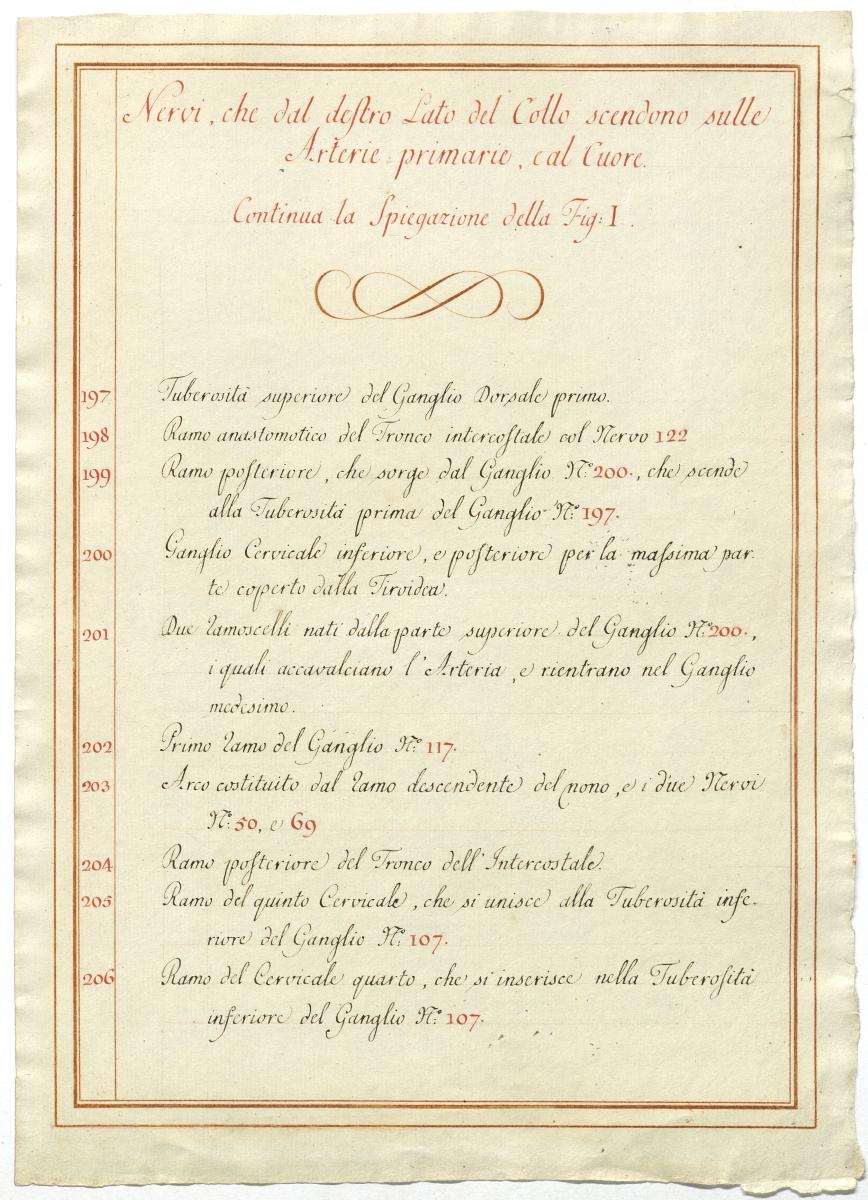 Nervi, che dal destro Lato del Collo scendono sulle
Arterie primarie, e al Cuore.
Continua la Spiegazione della Fig: I.
197 Tuberosità superiore del Ganglio Dorsale primo.
198 Ramo anastomotico del Tronco intercostale col Nervo 122
199 Ramo posteriore, che sorge dal Ganglio N.º 200., che scende
alla Tuberosità prima del Ganglio N.º 197.
200 Ganglio Cervicale inferiore, e posteriore per la massima par-
te coperto dalla Tiroidea.
201 Due ramoscelli nati dalla parte superiore del Ganglio N.º 200.,
i quali accavalciano l'Arteria, e rientrano nel Ganglio
medesimo.
202 Primo ramo del Ganglio N.º 117.
203 Arco costituito dal ramo descendente del nono, e i due Nervi
N.º 50, e 69
204 Ramo posteriore del Tronco dell'Intercostale.
205 Ramo del quinto Cervicale, che si unisce alla Tuberosità infe-
riore del Ganglio N.º 107.
206 Ramo del Cervicale quarto, che si inserisce nella Tuberosità
inferiore del Ganglio N.º 107.